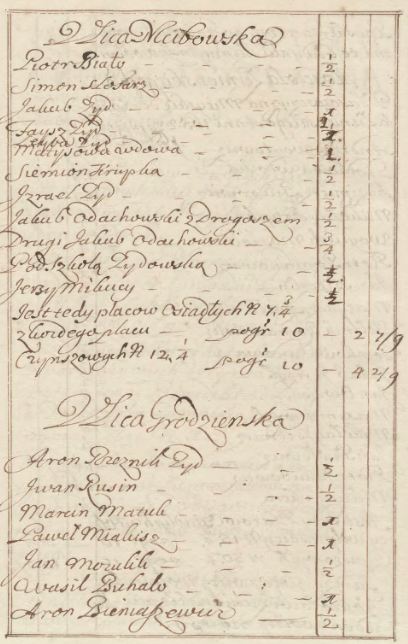 Vlica Mcibowska
Piotr Biało — — — ½
Simon Slosarz — — — ½
Jakub Zyd — — — 1
Zyd — — — 1.
Matysowa wdowa — — 1.
Siemion Krupka — — ½
Jzrael Zyd — — — ½
Jakub Odachowski z Drogoszem ½
Drugi Jakub Odachowski — — ¾
Pod Szkołą Zydowską — — ½
Jerzy Milucy — — — ½
Jest tedy placow Osiadłych N 7 ¾
z kozdego placu — pogr 10 — 2 7/9
Czynszowych N 12 ¼ pogr 10 — 4 2/9
Vlica Grodzienska
Aron Zyd — — ½
Jwan Rusin — — — ½
Marcin Matuk — — — 1
Paweł — — — 1
Jan — — — ½
Wasil Buhało — — — 1
Aron Bieniaszewicz — ½